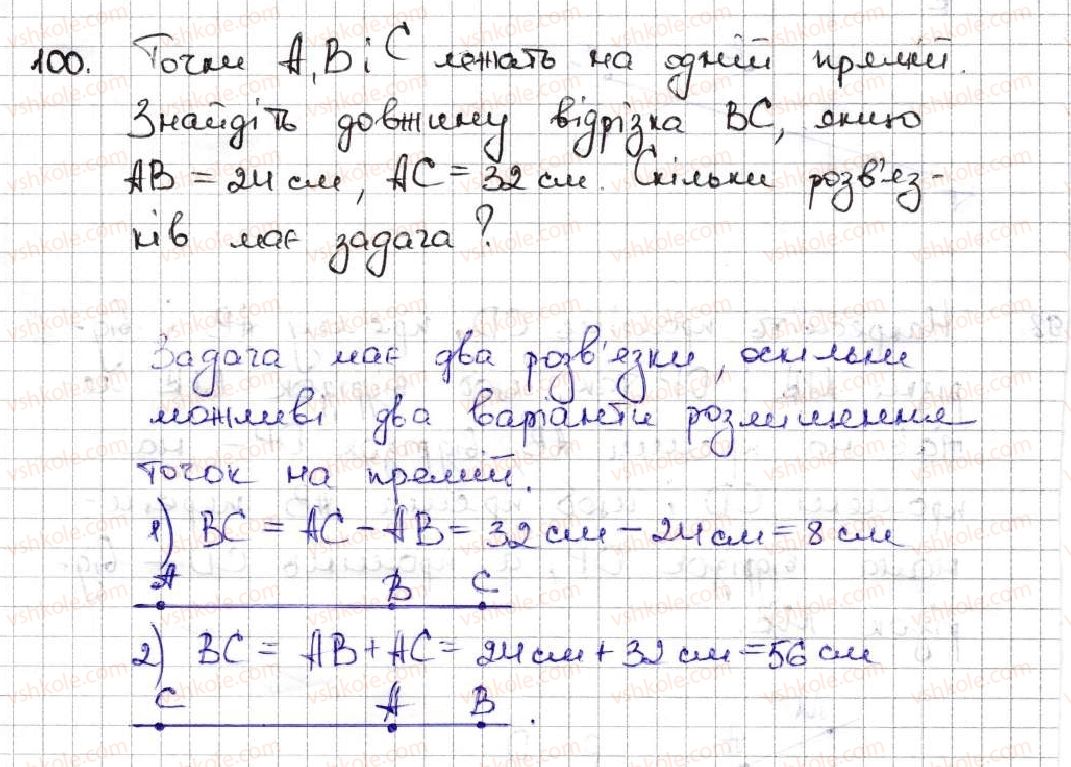 100. Точки A, B і C лежать на одній прямій.
Знайдіть довжину відрізка BC, якщо
AB = 24 см, AC = 32 см. Скільки розв'яз-
ків має задача?
Задача має два розв'язки, оскільки
можливі два варіанти розміщення
точок на прямій.
1) BC = AC - AB = 32 см - 24 см = 8 см
A B C
2) BC = AB + AC = 24 см + 32 см = 56 см
C A B .